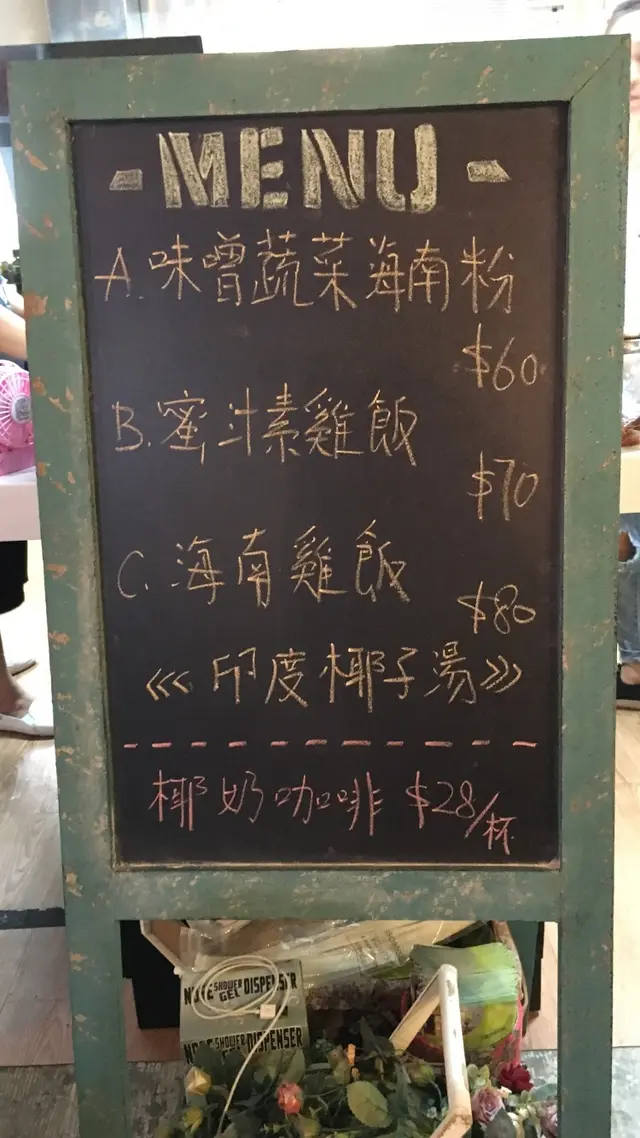 -MENU-
A.味噌蔬菜海南粉
$60
B.蜜汁素雞飯
$70
C.海南雞飯
$80
<<<印度椰子湯>>>
椰奶咖啡 $28/杯
NOSE SHOWER GEL DISPENSER
NOSE SHOWER GEL DISPENSER